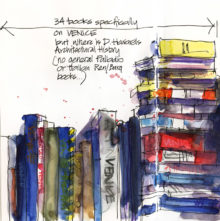 34 books specifically
on VENICE
but where is D. Howard's
Architectural History
(no general Palladio
or Italian Ren/Barq
books..)
VENICE